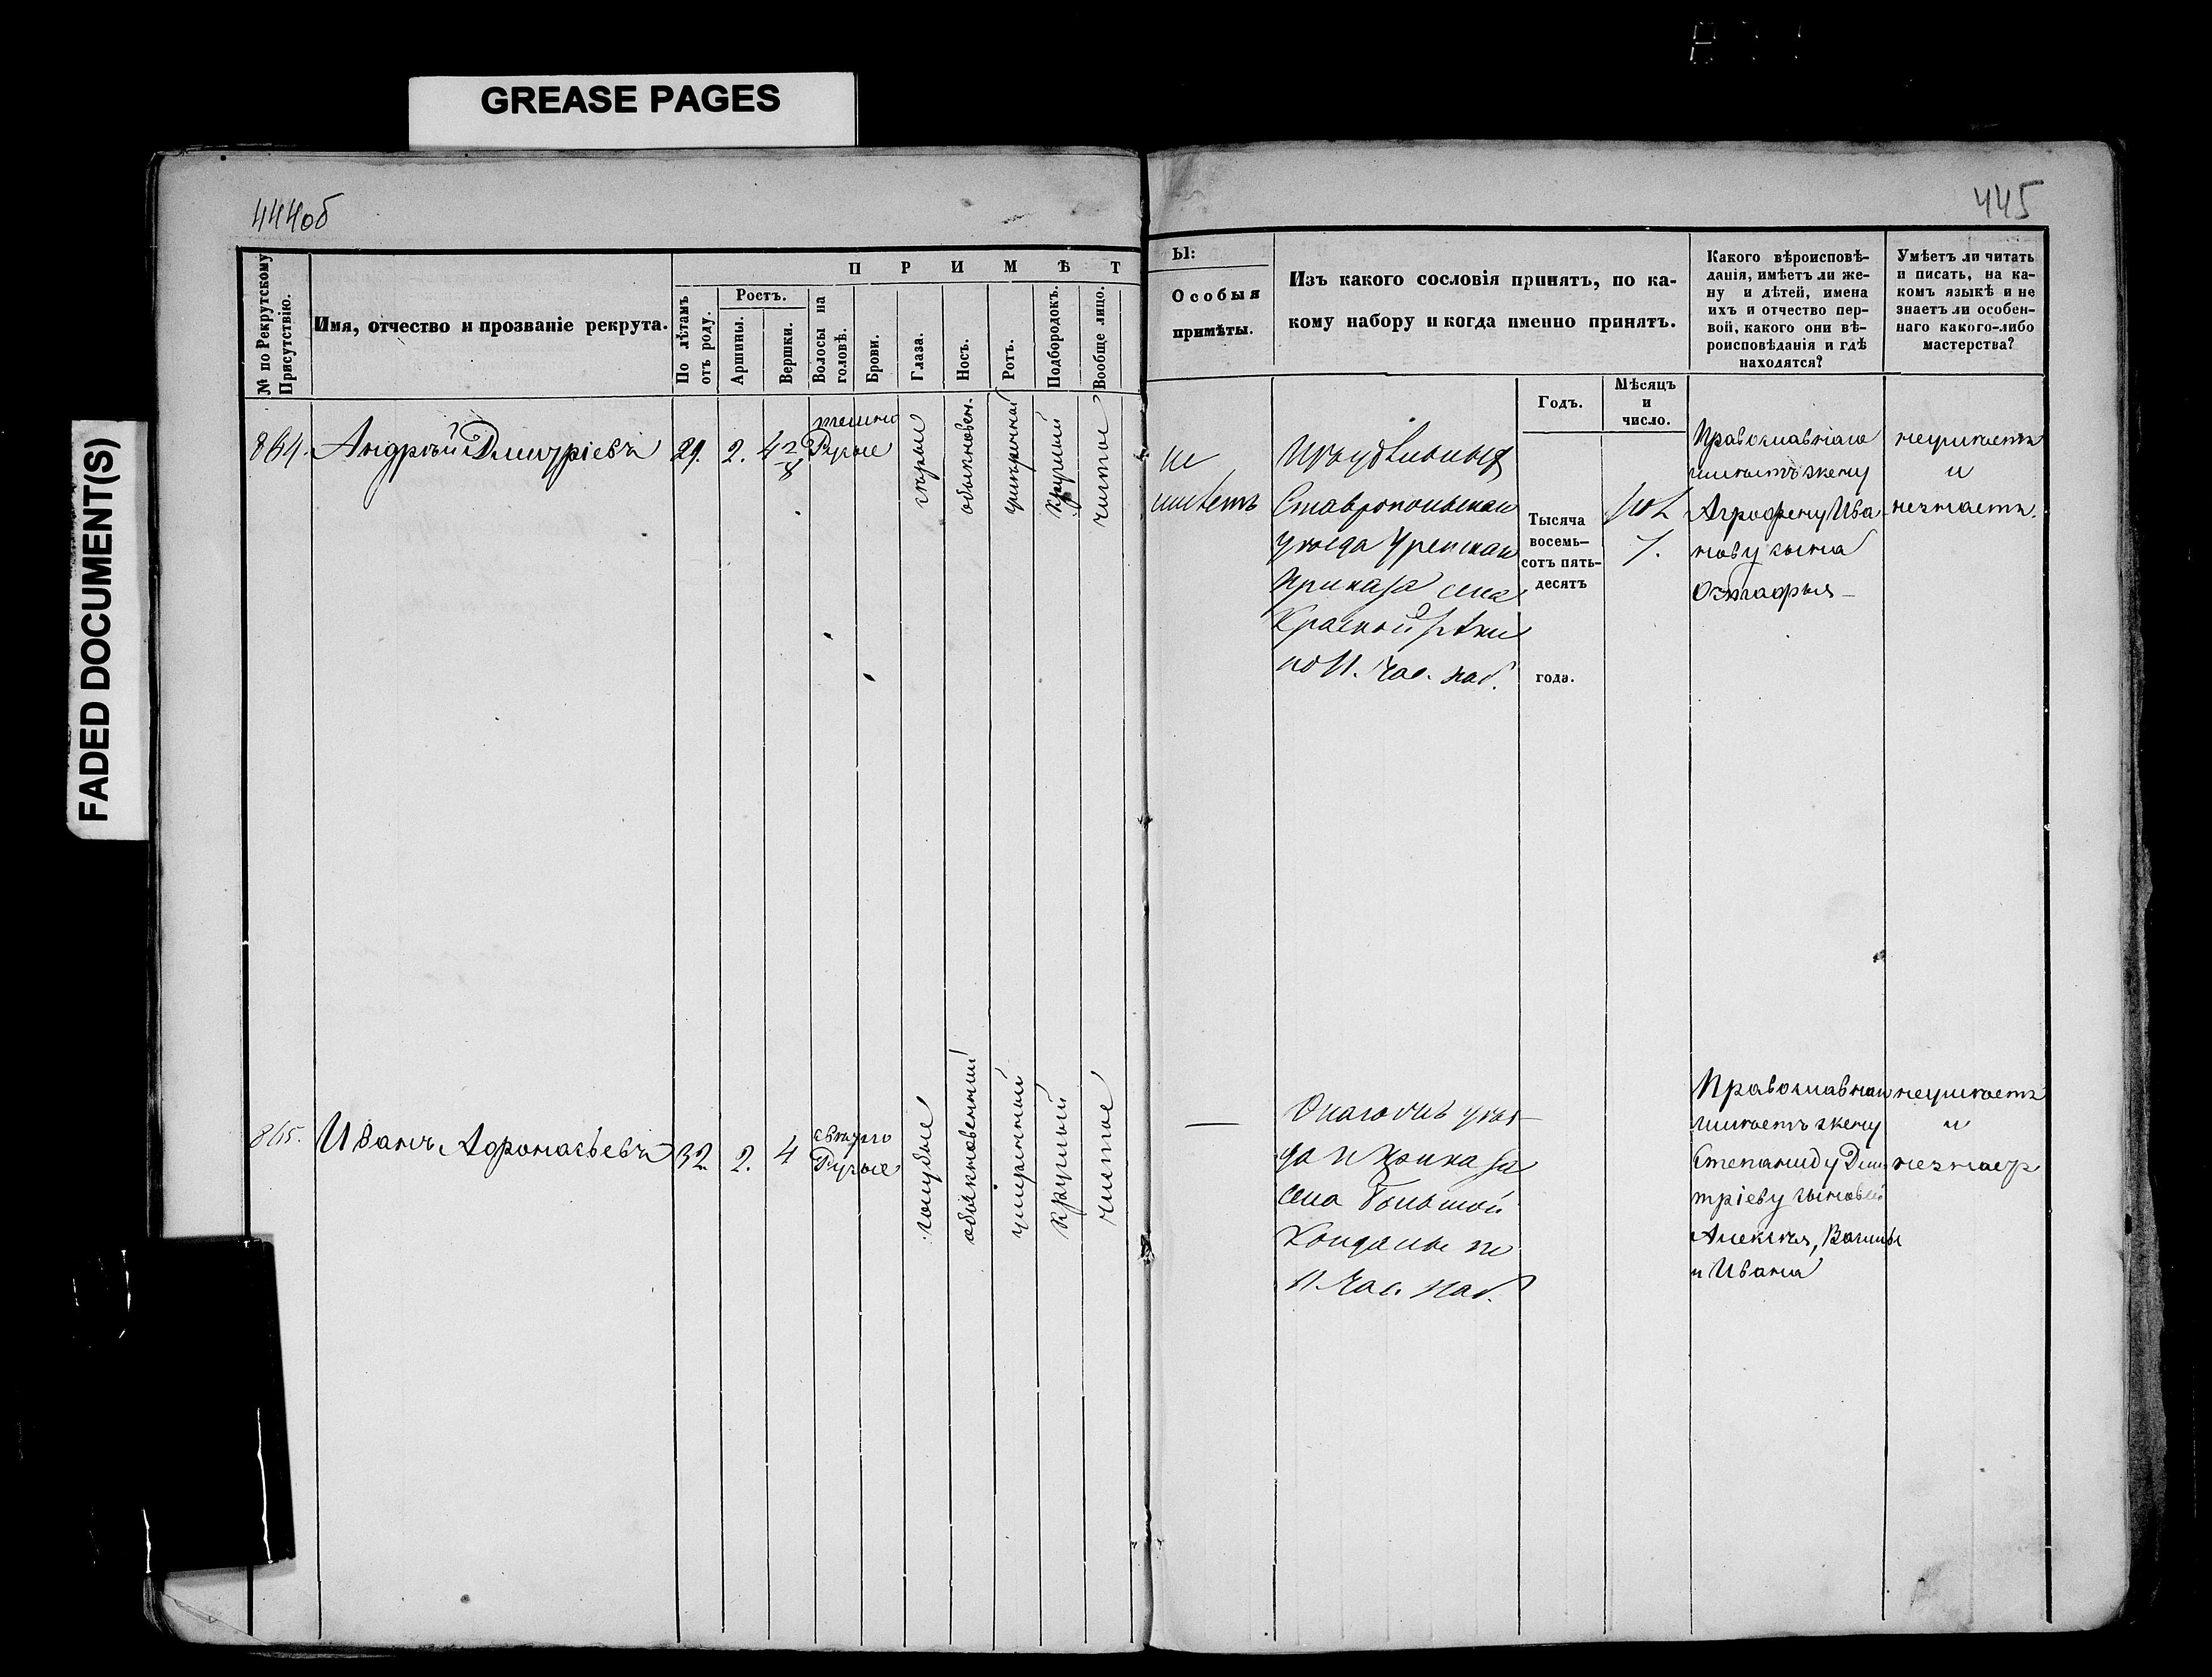 GREASE PAGES
FADED DOCUMENT(S)
444об
445
№ по Рекрутскому
Присутствію.
Имя, отчество и прозваніе рекрута.
П Р И М Ѣ Т
По лѣтамъ
отъ роду.
Ростъ.
Аршины.
Вершки.
Волосы на
головѣ.
Брови.
Глаза.
Носъ.
Ротъ.
Подбородокъ.
Вообще лицо.
Ы:
Особыя
примѣты.
Изъ какого сословія принятъ, по ка-
кому набору и когда именно принятъ.
Годъ.
Мѣсяцъ
и
число.
Какого вѣроисповѣ-
данія, имѣетъ ли же-
ну и дѣтей, имена
ихъ и отчество пер-
вой, какого они вѣ-
роисповѣданія и гдѣ
находятся?
Умѣетъ ли читать
и писать, на ка-
комъ языкѣ и не
знаетъ ли особен-
наго какого-либо
мастерства?
864.
Андрѣй Дмитріевъ
29.
2.
4 2/8
темно
Русые
сѣрые
обыкновен.
умѣренный
Круглый
чистое
не
имѣетъ
Изъ удѣльныхъ
Ставропольскаго
уѣзда
Приказа села
Красной рѣки
по 11. час. наб.
Тысяча
восемь-
сотъ пять-
десятъ
года.
7.
Православнаго
имѣетъ жену
Агрофену Ива-
нову сына
неумѣетъ
и
незнаетъ.
865.
Иванъ Афонасьевъ
32.
2.
4
свѣтло
Русые
голубые
обыкновенный
умѣренный
круглый
чистое
—
Онаго уѣз-
да и Приказа
села Большой
Кондалы по
11. час. наб.
Православнаго
имѣетъ жену
Степаниду Дми
тріеву сыновей
Алексѣя, Василья
и Ивана
неумѣетъ
и
незнаетъ